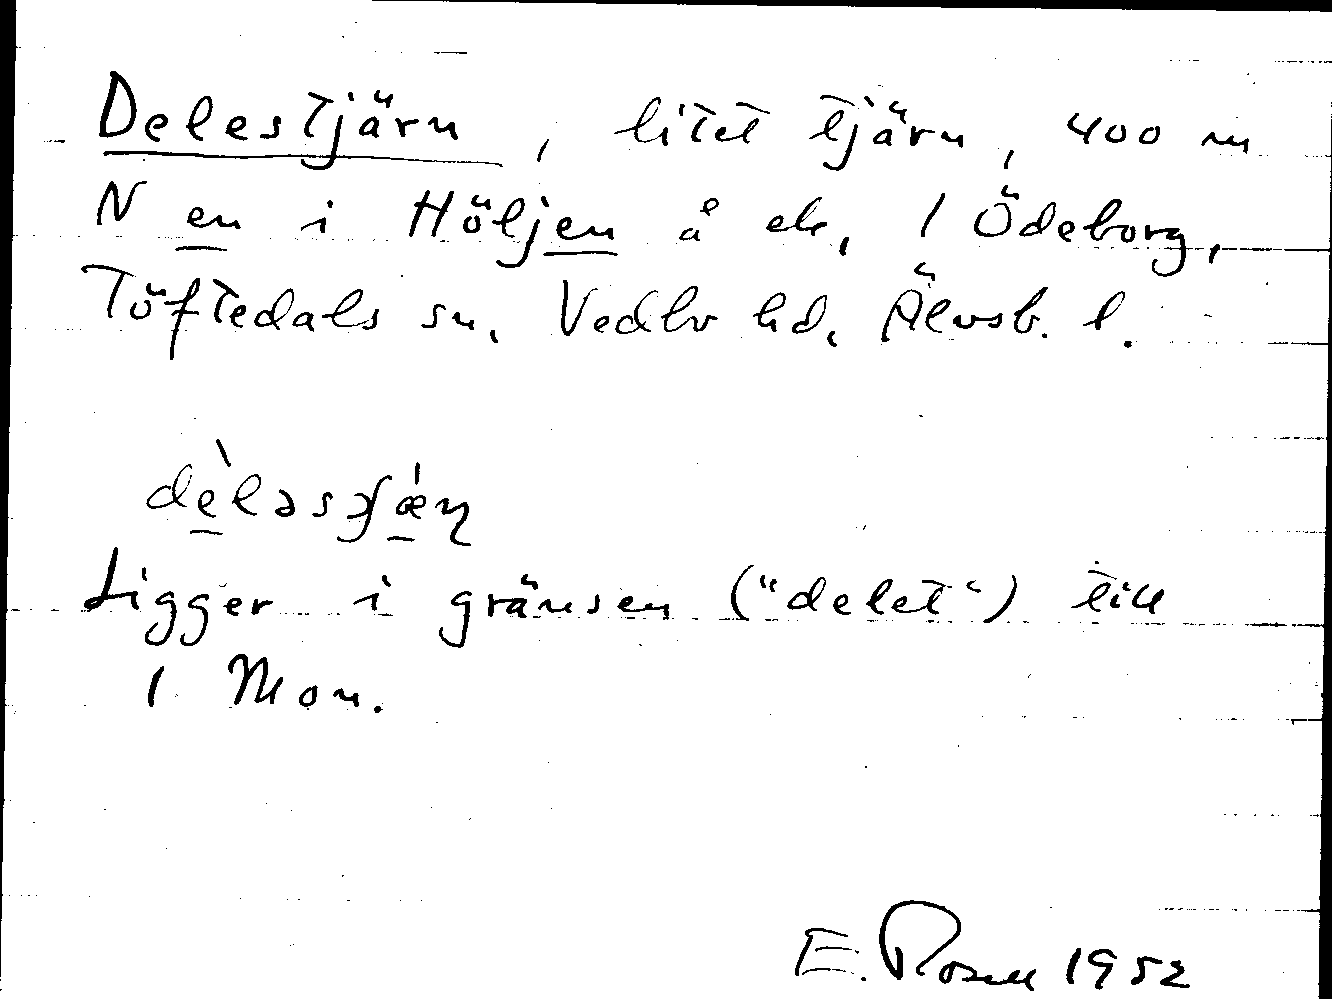 Delestjärn, litet tjärn, 400 m
N en i Höljen å ek, 1 Ödeborg,
Töftedals sn, Vedbo hd, Älvsb. l.
Ligger i gränsen ("delet") till
1 Mon.
E. Rosell 1952